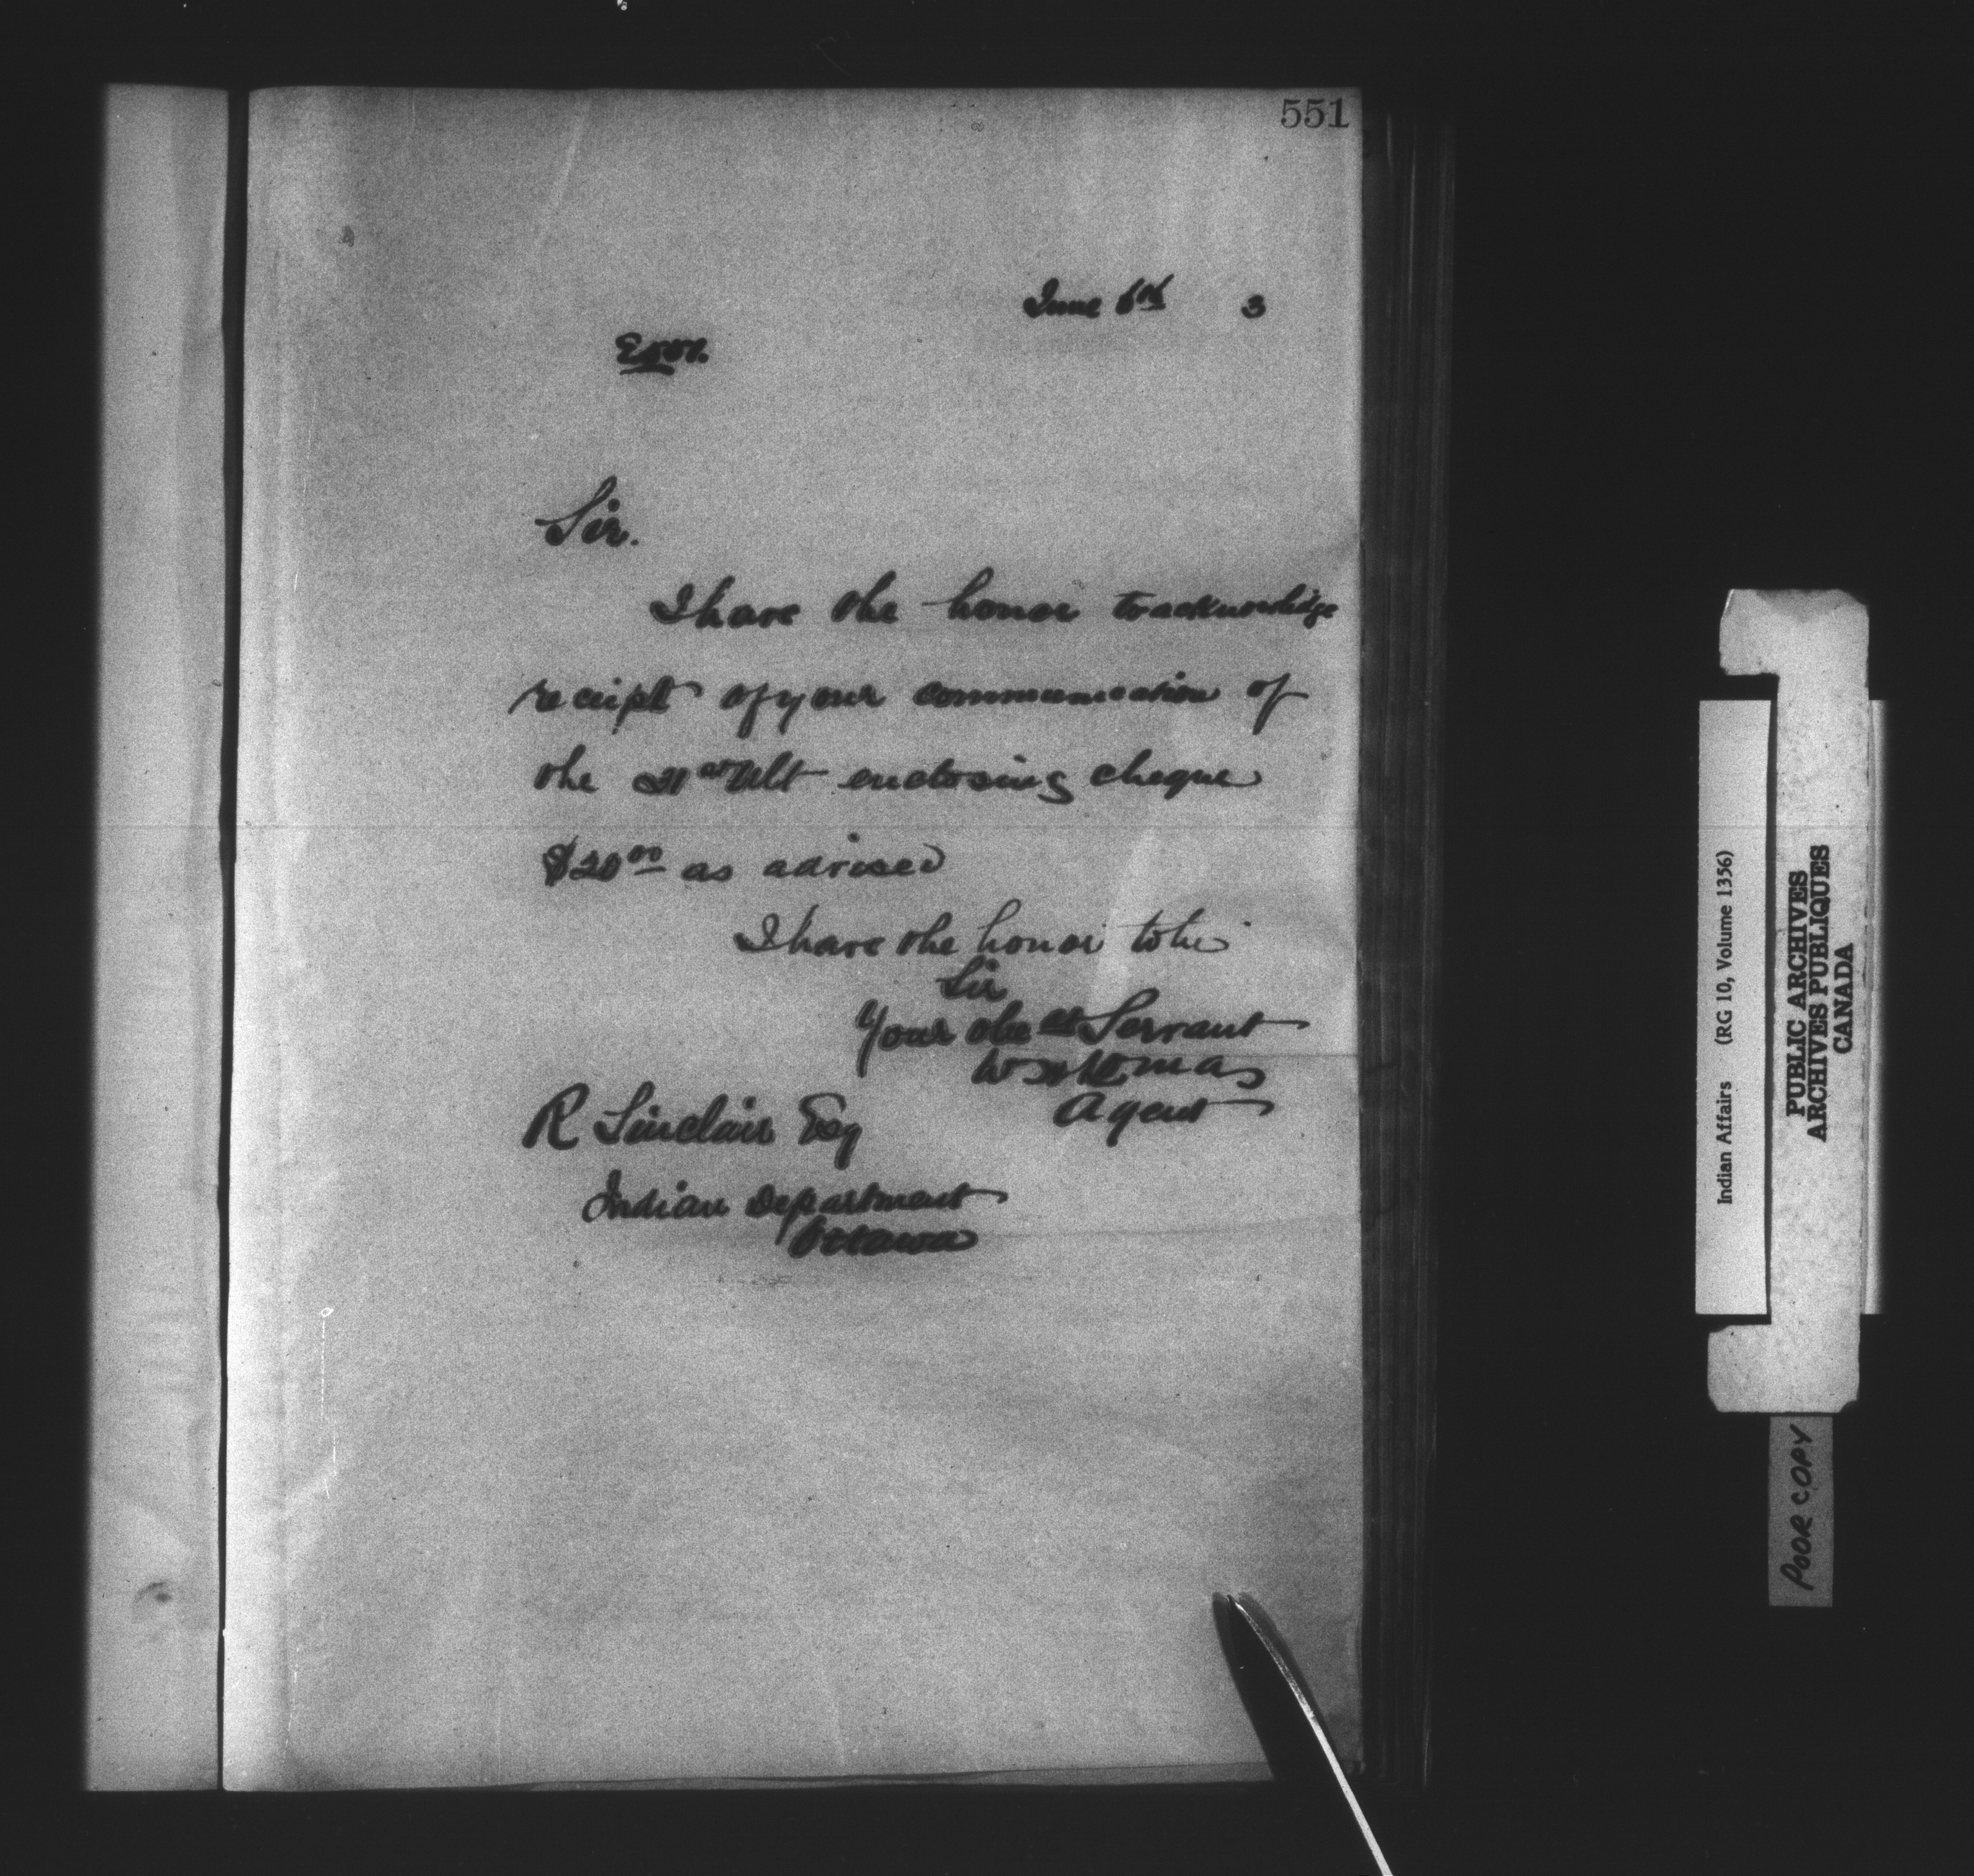 551
June 6th 3
Sir.
I have the honor to acknowledge
receipt of your communication of
the Ult enclosing cheque
as advised
I have the honor to be
Sir
Your obe dt Servant
Agent
R Sinclair Esq
Indian Department
Ottawa
Indian Affairs (RG 10, Volume 1356)
PUBLIC ARCHIVES
ARCHIVES PUBLIQUES
CANADA
POOR COPY